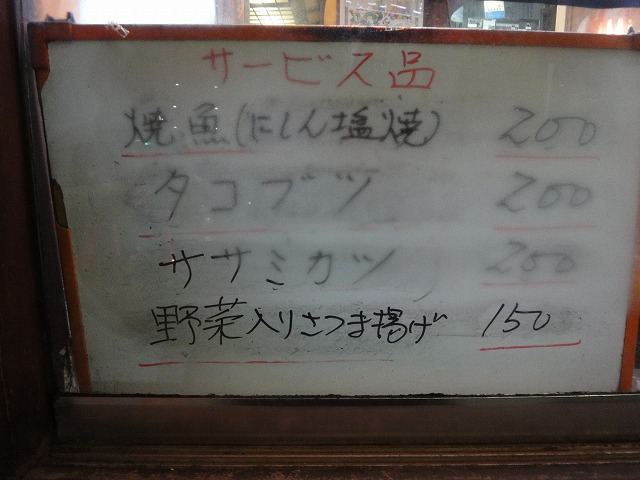 サービス品
焼魚(にしん塩焼) 200
タコブツ 200
ササミカツ 200
野菜入りさつま揚げ 150